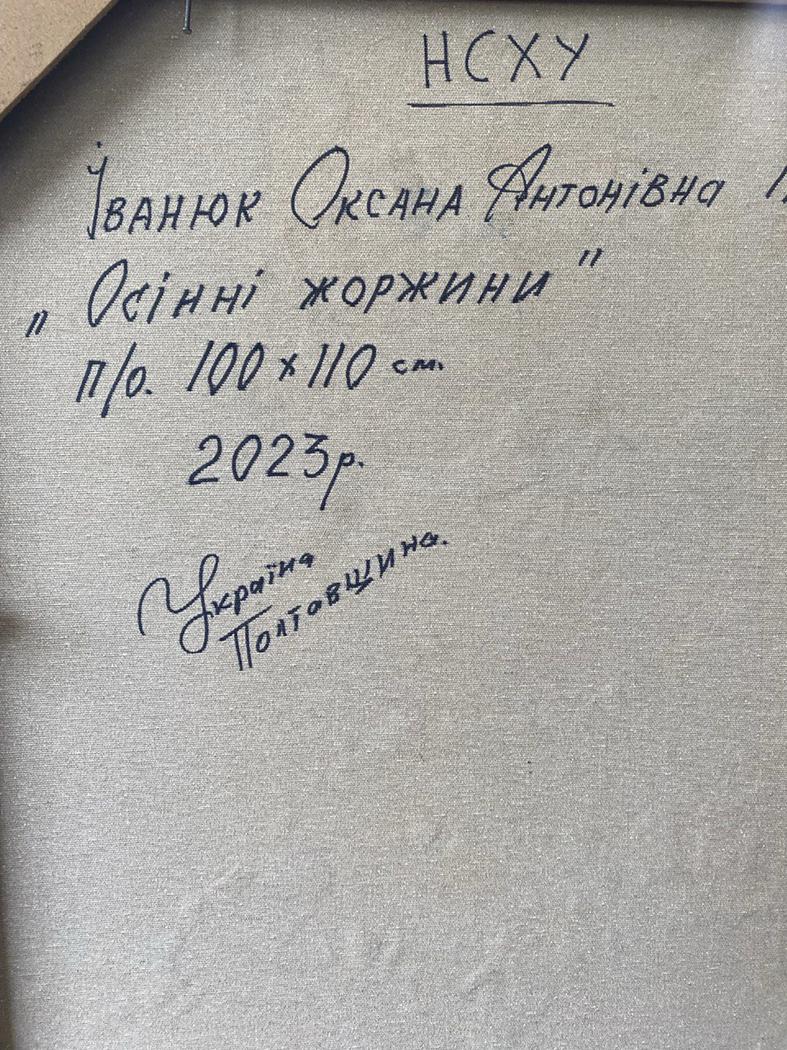 НСХУ
Іванюк Оксана Антонівна
„Осінні жоржини"
п/о. 100 x 110 см.
2023р.
Україна
Полтавщина.